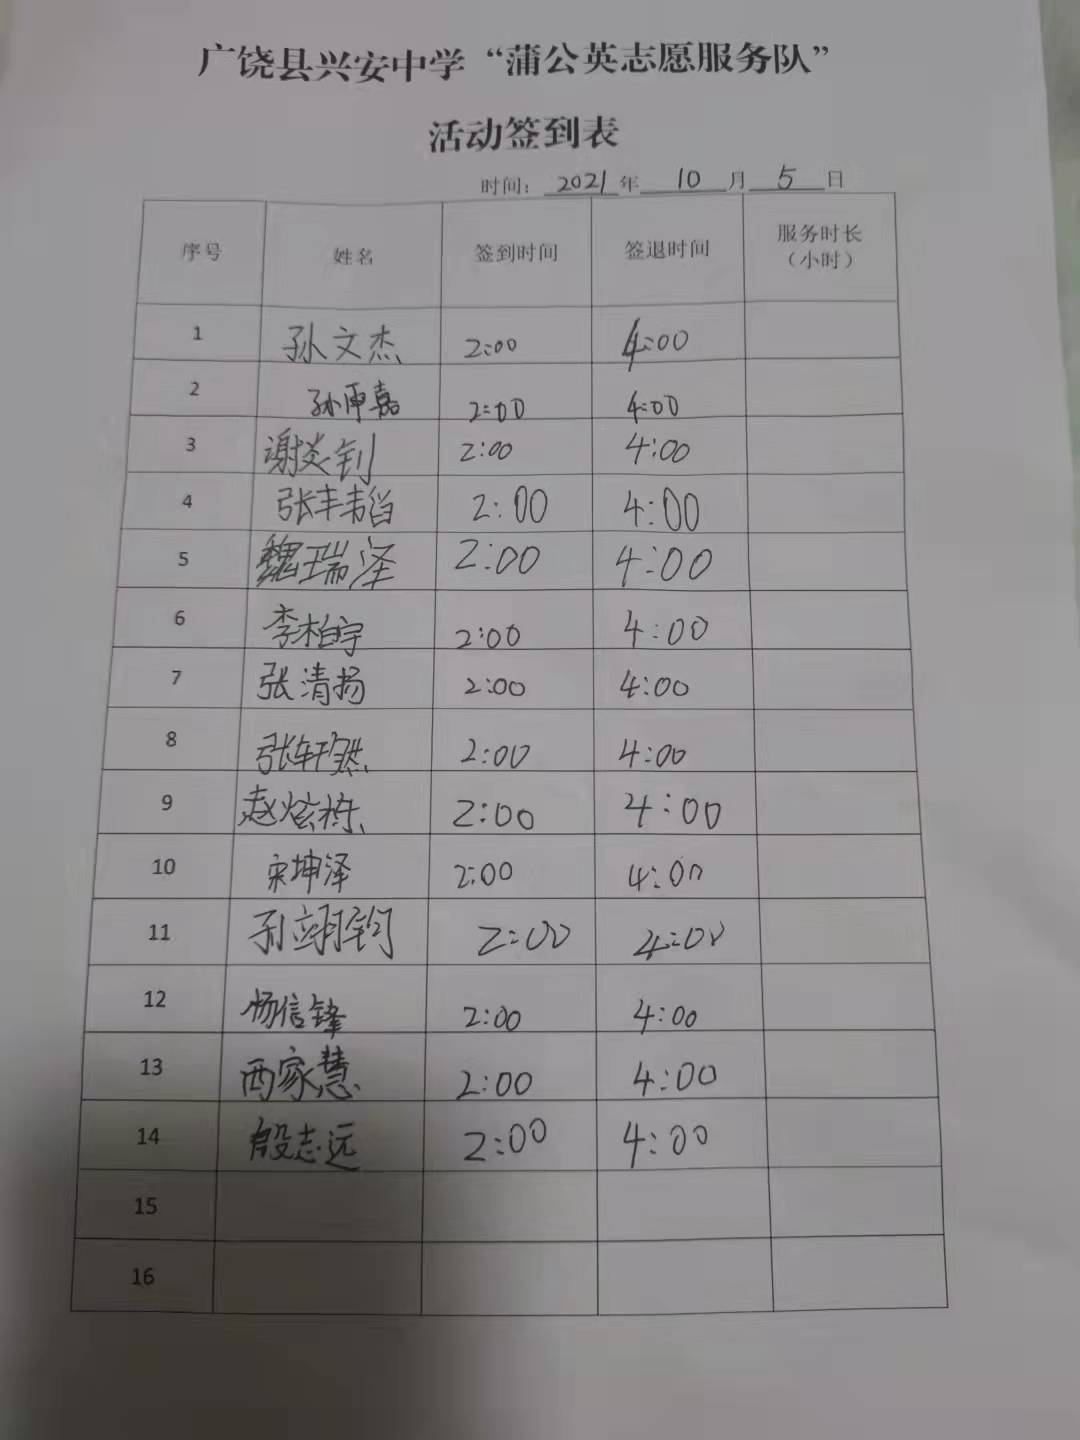 广饶县兴安中学“蒲公英志愿服务队”
活动签到表
时间：2021年10月5日
序号 姓名 签到时间 签退时间 服务时长（小时）
1 孙文杰 2:00 4:00
2 2:00 4:00
3 谢炎钊 2:00 4:00
4 张丰韬 2:00 4:00
5 魏瑞泽 2:00 4:00
6 李柏宇 2:00 4:00
7 张清扬 2:00 4:00
8 2:00 4:00
9 赵炫栋 2:00 4:00
10 宋坤泽 2:00 4:00
11 孙翊钧 2:00 4:00
12 杨信锋 2:00 4:00
13 西家慧 2:00 4:00
14 殷志远 2:00 4:00
15
16